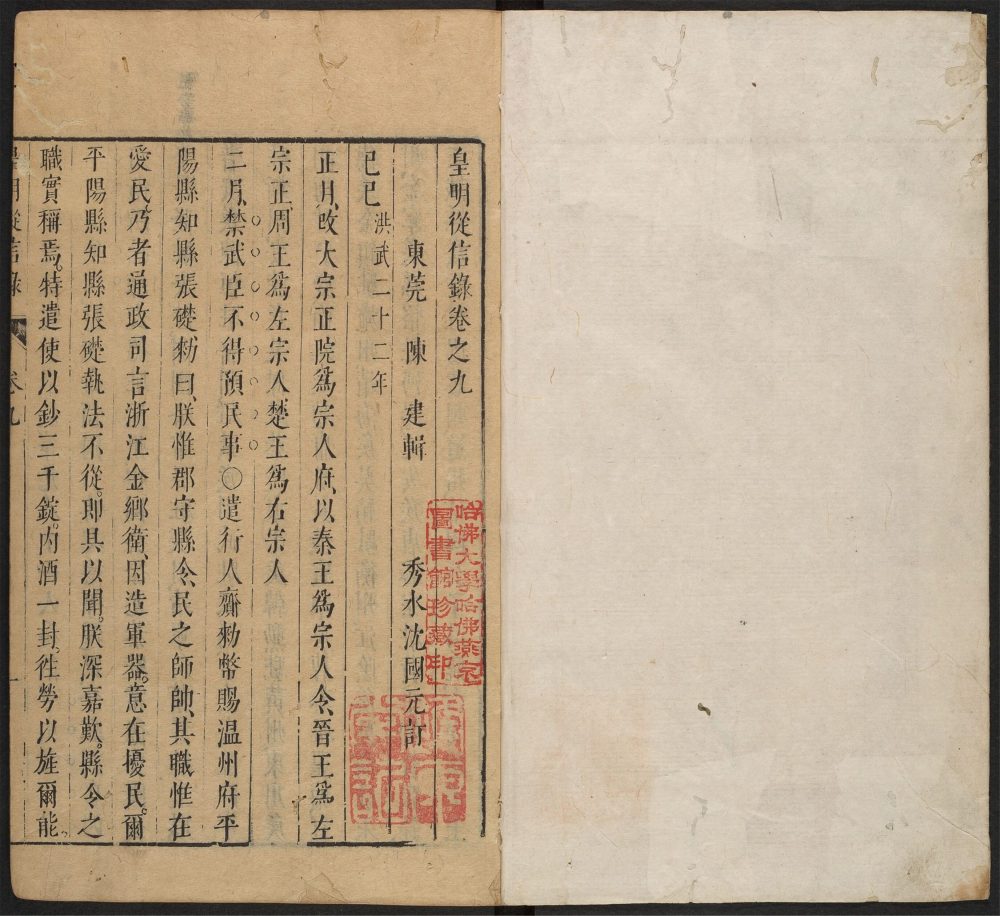 皇明從信錄卷之九
東莞陳 建輯 秀水沈國元訂
己巳 洪武二十二年
正月、改大宗正院爲宗人府、以秦王爲宗人令、晉王爲左
宗正、周王爲左宗人、楚王爲右宗人
二月、禁武臣不得預民事〇遣行人齎勑幣賜温州府平
陽縣知縣張礎、勑曰、朕惟郡守縣令、民之師帥、其職惟在
愛民、乃者通政司言浙江金鄉衛、因造軍器。意在擾民。爾
平陽縣知縣張礎執法不從。卽具以聞。朕深嘉歎。縣令之
職實稱焉。特遣使以鈔三千錠。內酒一封。徃勞以旌爾能。
皇明從信錄 卷九 一
哈佛大學哈佛燕京
圖書館珍藏印